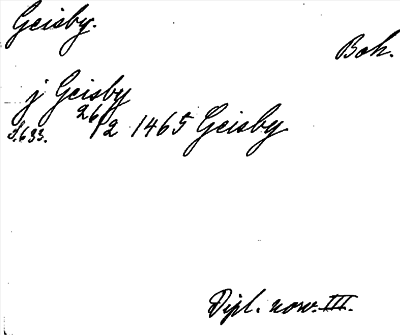 Geisby.
Boh.
j Geisby
S.633. 26/2 1465 Geisby
Dipl. norv. III.